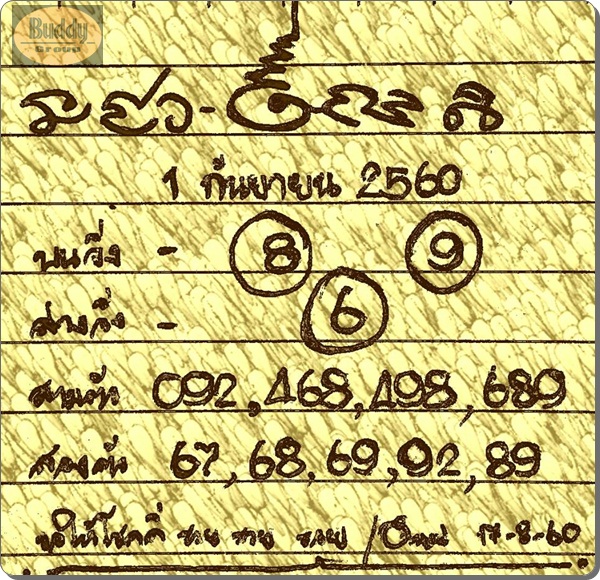 Buddy
Group
1 กันยายน 2560
บนวิ่ง - 8 9
ล่างวิ่ง - 6
สามตัว 092, 468, 498, 689
สองตัว 67, 68, 69, 92, 89
ขอให้โชคดี รวย รวย รวย / 17-8-60